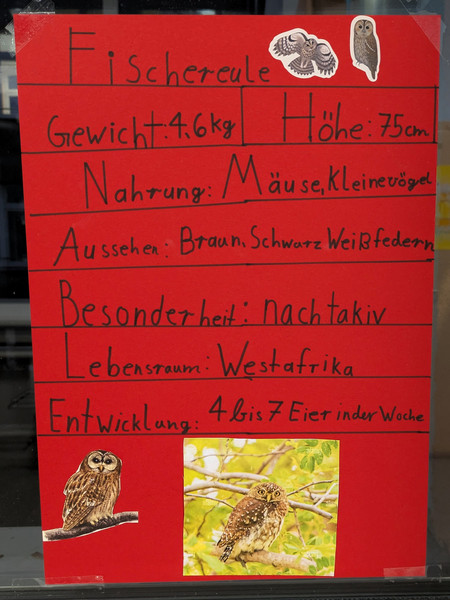 Fischereule
Gewicht: 4,6kg Höhe: 75cm
Nahrung: Mäuse, Kleinevögel
Aussehen: Braun, Schwarz Weißfedern
Besonderheit: nachtakiv
Lebensraum: Westafrika
Entwicklung: 4 bis 7 Eier in der Woche